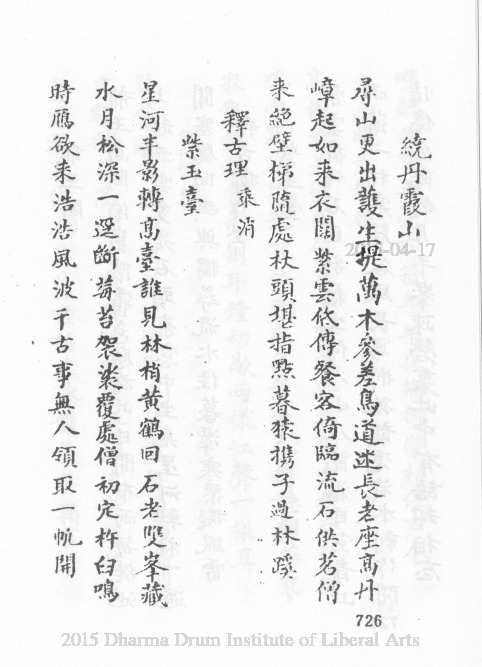 繞丹霞山
尋山更出護生提萬木參差鳥道迷長老座高丹
嶂起如來衣闊紫雲低傳餐客倚臨流石供茗僧
来絶壁梯隨處杖頭堪指點暮猿携子過林蹊
釋古理 乘消
紫玉臺
星河半影轉高臺誰見林梢黄鶴回石老雙峯藏
水月松深一逕斷莓苔袈裟覆處僧初定杵臼鳴
時雁欲来浩浩風波千古事無人領取一帆開
-04-17
726
2015 Dharma Drum Institute of Liberal Arts